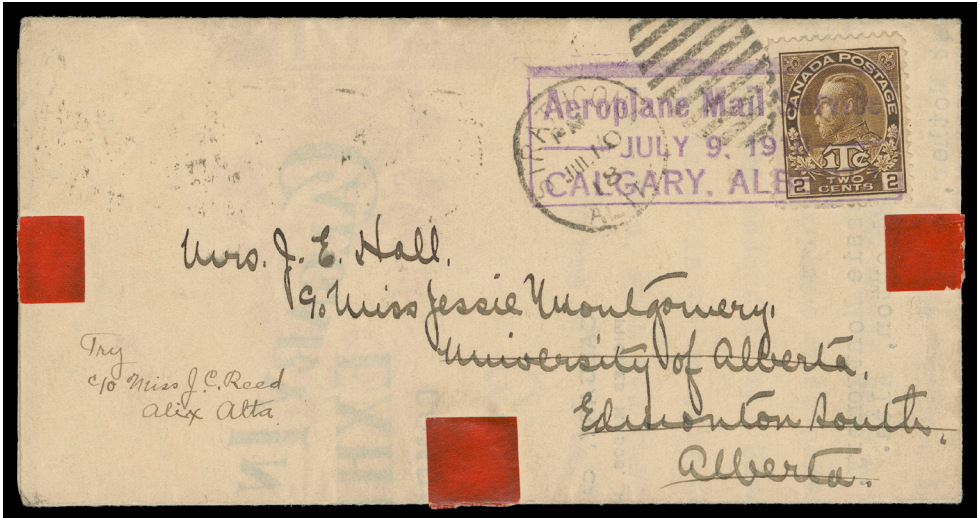 Aeroplane Mail
JULY 9, 191
CALGARY, ALB
PM
JUL 10
18
CANADA POSTAGE
1Tc
2 TWO CENTS 2
Mrs. J. E. Hall.
c/o Miss Jessie Montgomery.
University of Alberta.
Edmonton South.
Alberta.
Try
c/o Miss J. C. Reed
Alix Alta.